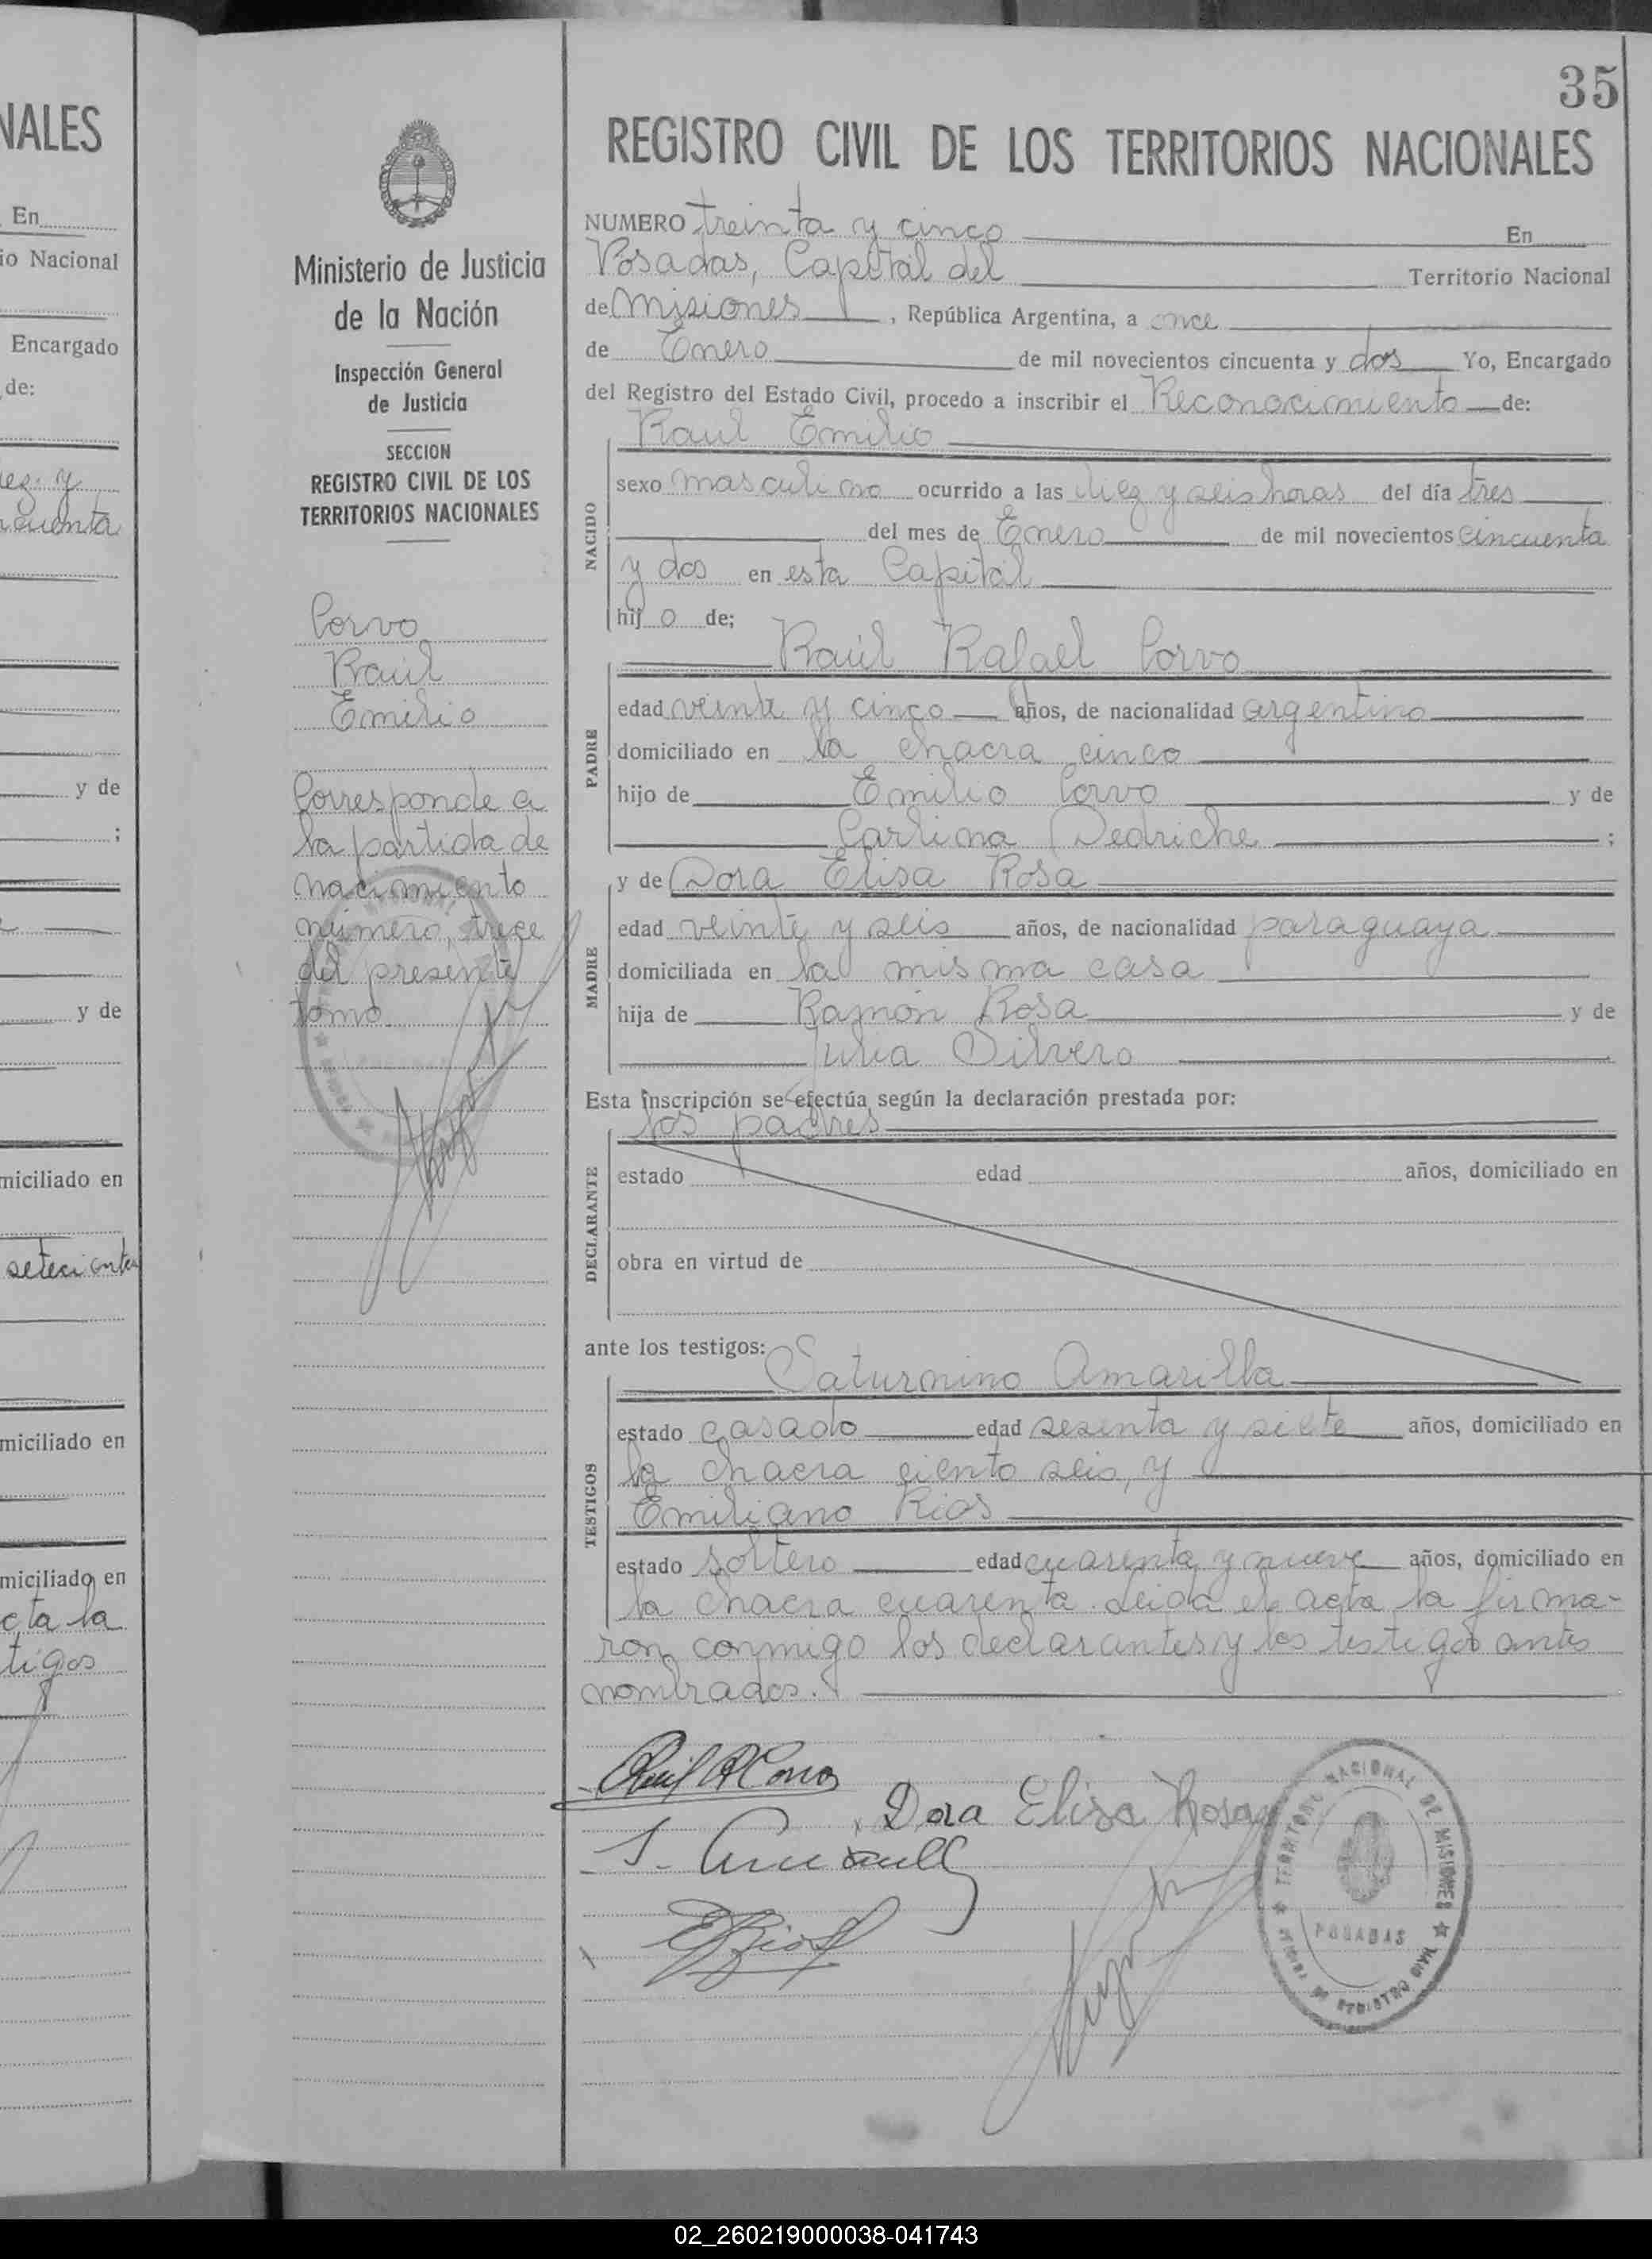 NALES
En
io Nacional
Encargado
de:
y de
;
y de
miciliado en
miciliado en
miciliado en
cta la
tigos
Ministerio de Justicia
de la Nación
Inspección General
de Justicia
SECCION
REGISTRO CIVIL DE LOS
TERRITORIOS NACIONALES
Corvo
Raúl
Emilio
Corresponde a
la partida de
nacimiento
número trece
del presente
tomo
35
REGISTRO CIVIL DE LOS TERRITORIOS NACIONALES
NUMERO treinta y cinco En
Posadas, Capital del Territorio Nacional
de Misiones, República Argentina, a once
de Enero de mil novecientos cincuenta y dos Yo, Encargado
del Registro del Estado Civil, procedo a inscribir el Reconocimiento de:
Raul Emilio
NACIDO
sexo masculino ocurrido a las diez y seis horas del día tres
del mes de Enero de mil novecientos cincuenta
y dos en esta Capital
hijo de;
Raúl Rafael Corvo
PADRE
edad veinte y cinco años, de nacionalidad argentino
domiciliado en la chacra cinco
hijo de Emilio Corvo y de
Carlina Dedriche ;
y de Dora Elisa Rosa
MADRE
edad veinte y seis años, de nacionalidad paraguaya
domiciliada en la misma casa
hija de Ramón Rosa y de
Julia Silvero
Esta inscripción se efectúa según la declaración prestada por:
los padres
DECLARANTE
estado edad años, domiciliado en
obra en virtud de
ante los testigos:
Saturnino Amarilla
TESTIGOS
estado casado edad sesenta y siete años, domiciliado en
la chacra ciento seis, y
Emiliano Rios
estado soltero edad cuarenta y nueve años, domiciliado en
la chacra cuarenta. Leida el acta la firma-
ron conmigo los declarantes y los testigos antes
nombrados.
Dora Elisa Rosa
TERRITORIO NACIONAL DE MISIONES
POSADAS
02_260219000038-041743